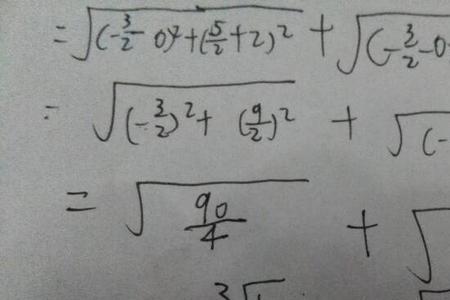 = √((-3/2 - 0)² + (5/2 + 2)²) + √((-3/2 - 0
= √((-3/2)² + (9/2)²) + √((-
= √(90/4) + √
3√